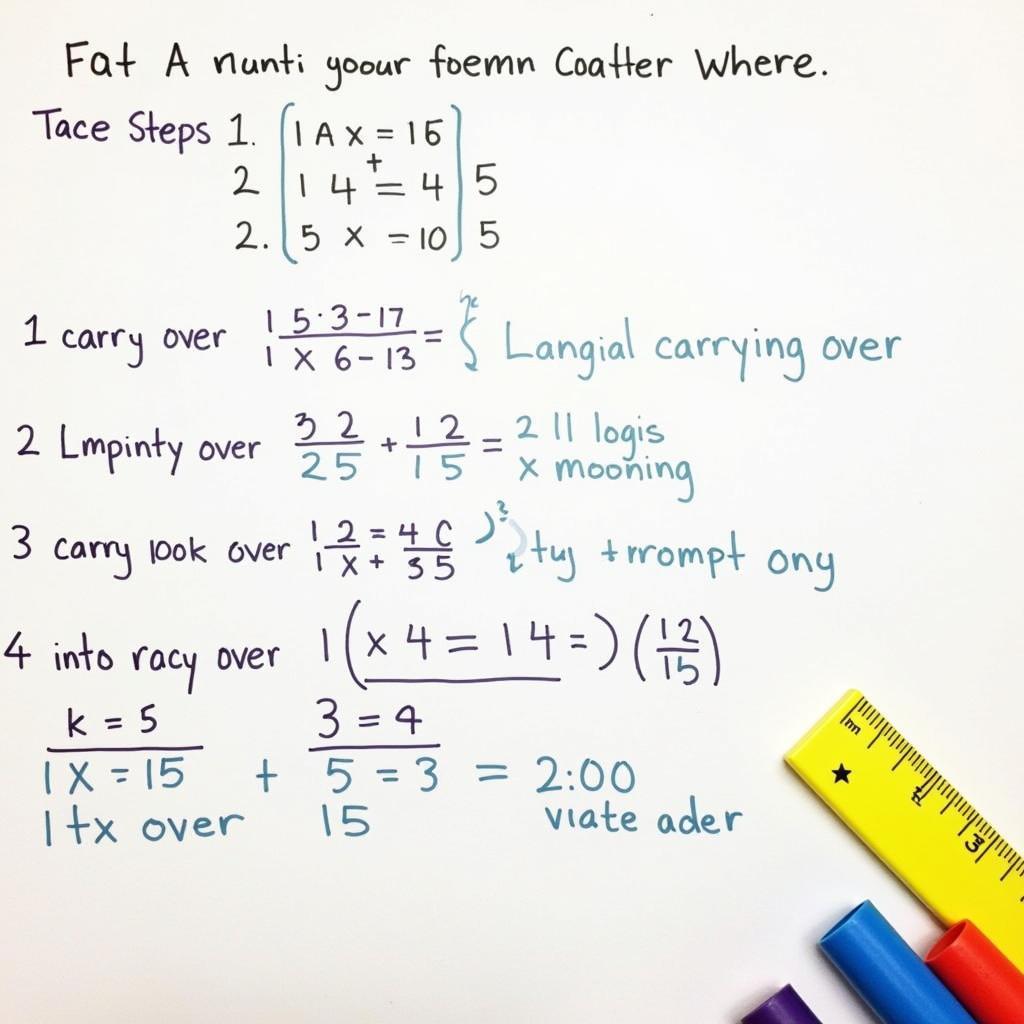 Fat A nunti yoour foemn Coatter Where.
Tace Steps 1. 1 A x = 16
2 1 4 + = 4 5
2. 5 x = 10 5
1 carry over 1 5·3-17 / 1 x 6-13 = { Langial carrying over
2 Lmpinty over 3 2 / 25 + 1 2 / 1 5 = 2 11 logis
x mooning
3 carry look over 1 2 / 1 x + = 4 C / 3 5 tuy trrompt ony
4 into racy over 1 (x 4 = 14 =) (12/15)
k = 5 3 = 4
1 X = 15 + 5 = 3 = 2:00
1 tx over 15 viate ader